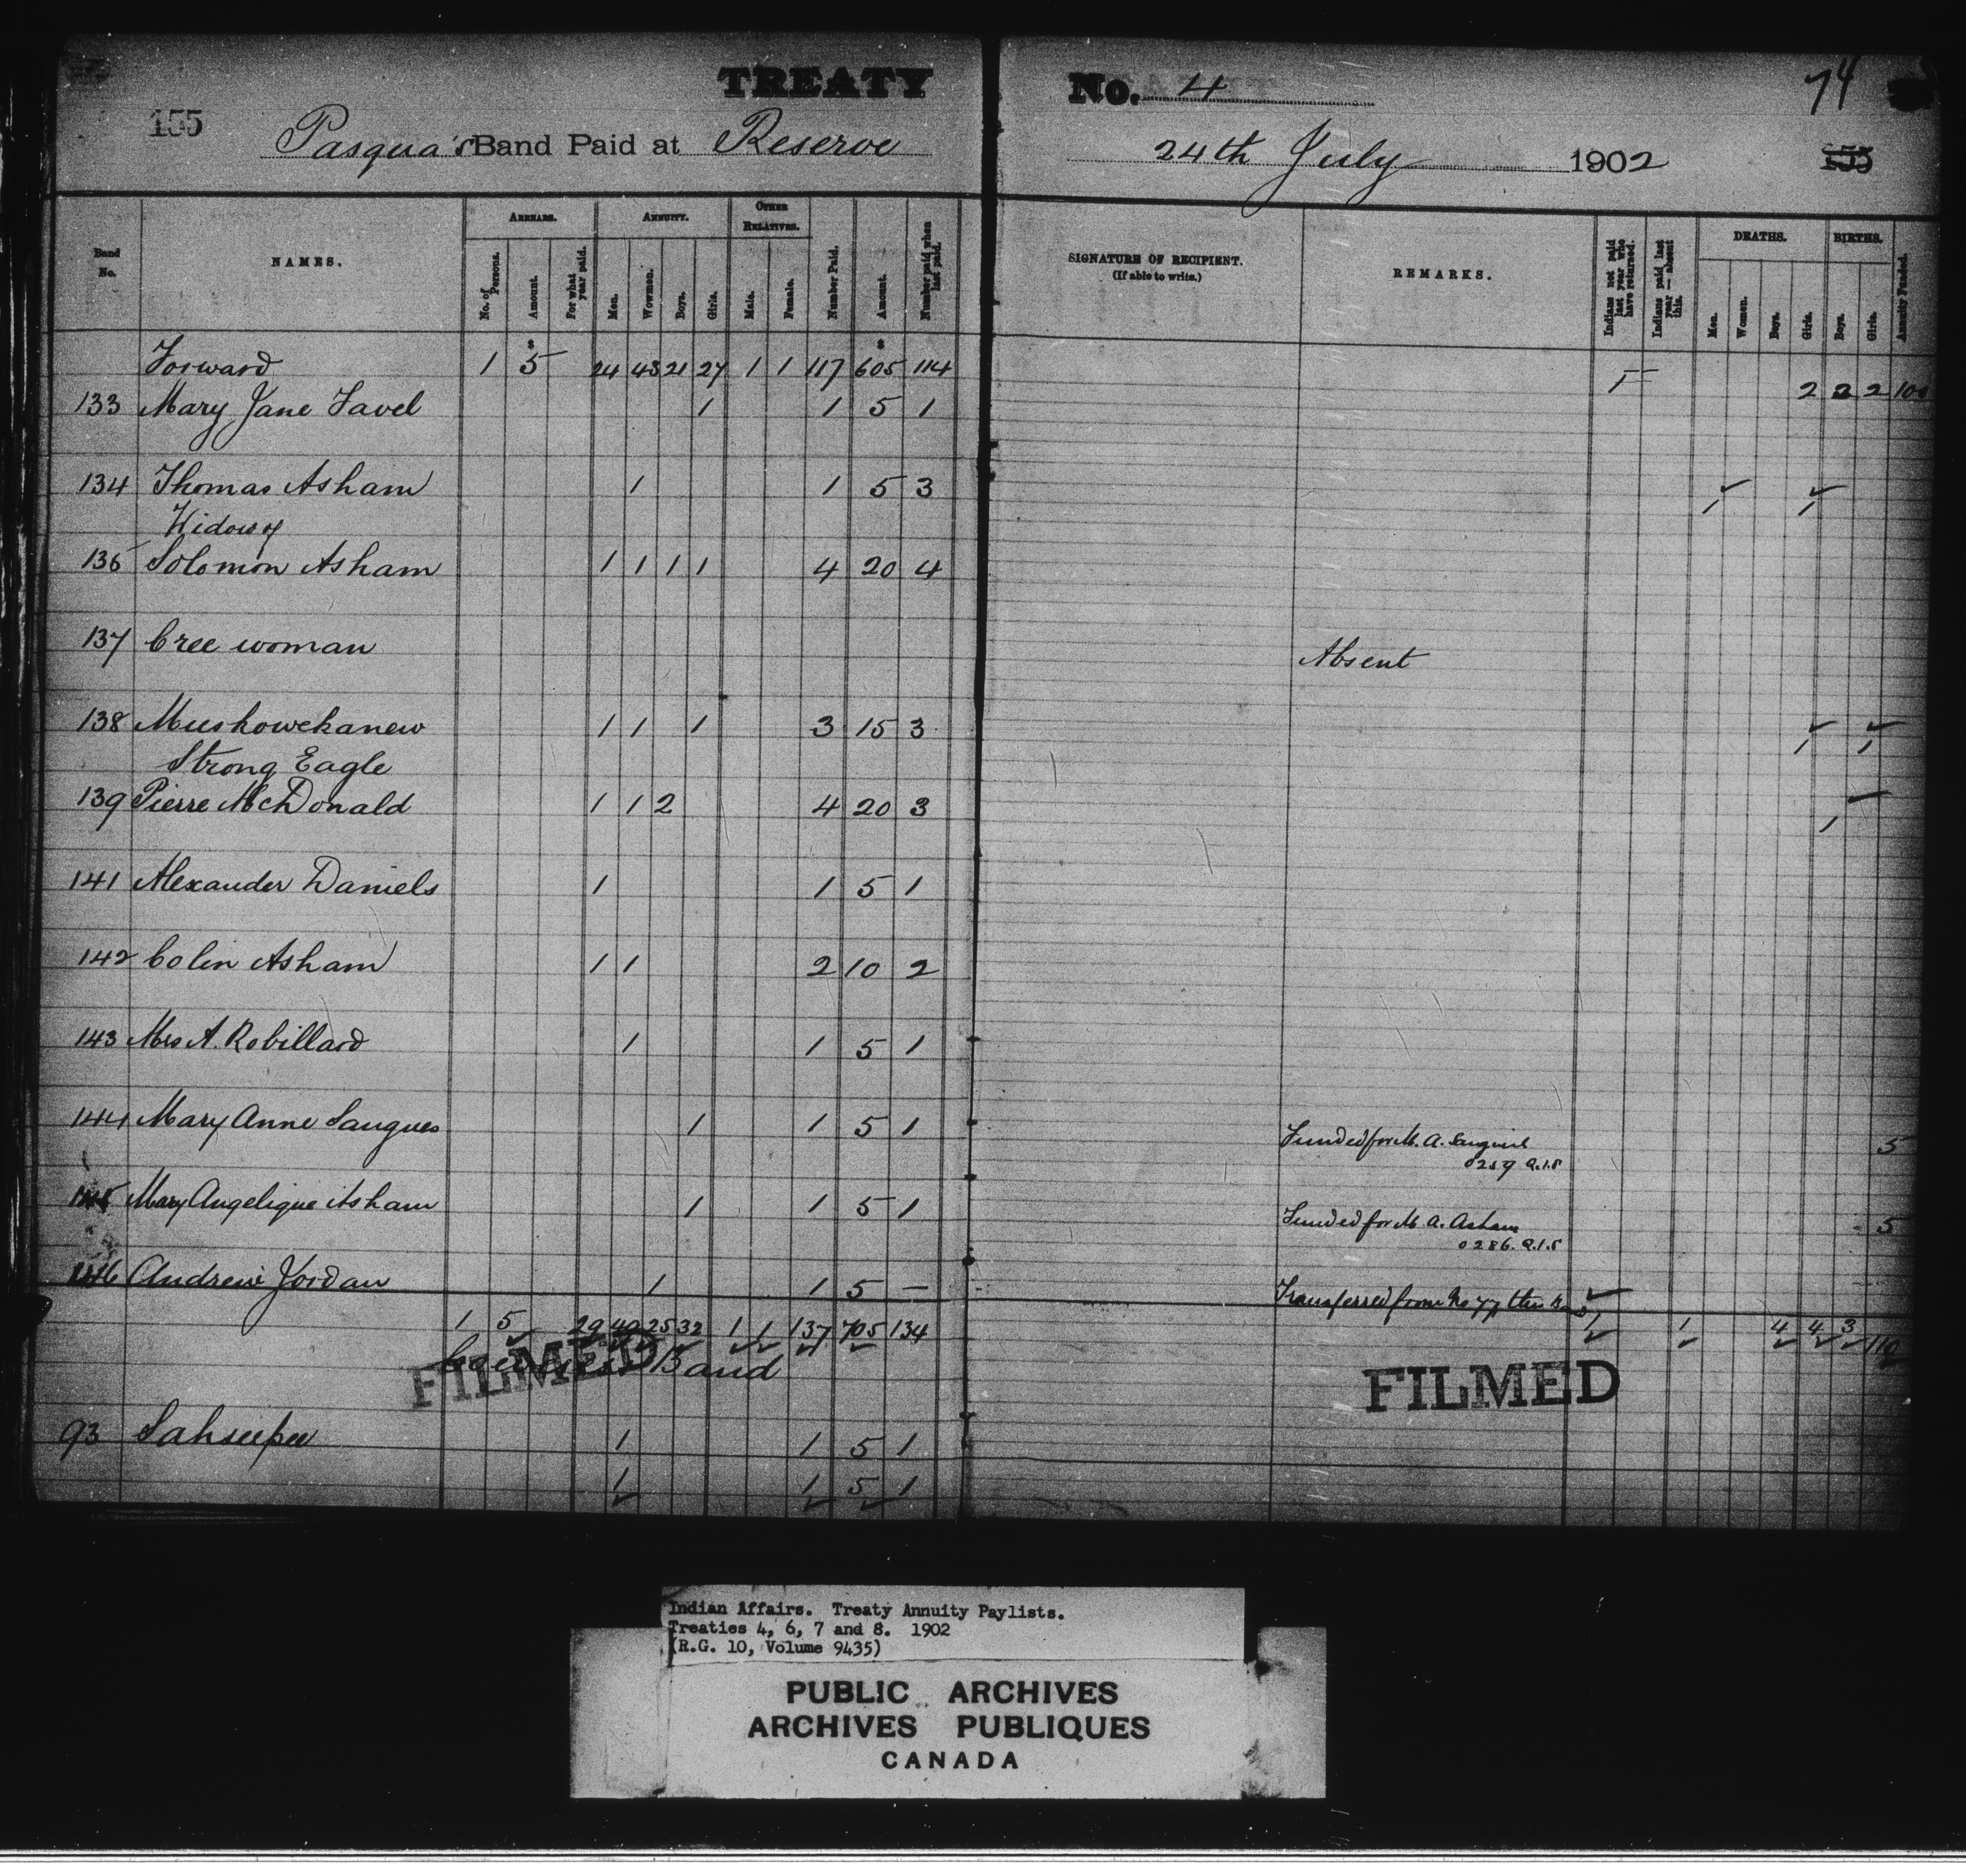 TREATY No. 4
74
155 Pasqua's Band Paid at Reserve 24th July 1902 155
Band No. NAMES. ARREARS. No. of Persons. Amount. For what year paid. ANNUITY. Men. Women. Boys. Girls. OTHER RELATIVES. Male. Female. Number Paid. Amount. Number paid when last paid. SIGNATURE OF RECIPIENT. (If able to write.) REMARKS. Indians not paid last year who have returned. Indians paid last year—absent this. DEATHS. Men. Women. Boys. Girls. BIRTHS. Boys. Girls. Annuity Funded.
Forward 1 5 24 43 21 27 1 1 117 605 114 1 2 2 2 100
133 Mary Jane Favel 1 1 5 1
134 Thomas Asham 1 1 5 3 1 1
Widow of
136 Solomon Asham 1 1 1 1 4 20 4
137 Cree woman Absent
138 Muskowekanew 1 1 1 3 15 3 1 1
Strong Eagle
139 Pierre McDonald 1 1 2 4 20 3 1
141 Alexander Daniels 1 1 5 1
142 Colin Asham 1 1 2 10 2
143 Mrs A. Robillard 1 1 5 1
144 Mary Anne Saugues 1 1 5 1 Funded for M. A. 5
0259 Q.1.5
145 Mary Angelique Asham 1 1 5 1 Funded for M. A. Asham 5
0286. Q.1.5
146 Andrew Jordan 1 1 5 — Transferred from No 77 this
1 5 29 49 25 32 1 1 137 705 134 1 1 4 4 3 110
Band
FILMED FILMED
93 Sahseepee 1 1 5 1
1 1 5 1
Indian Affairs. Treaty Annuity Paylists.
Treaties 4, 6, 7 and 8. 1902
(R.G. 10, Volume 9435)
PUBLIC ARCHIVES
ARCHIVES PUBLIQUES
CANADA